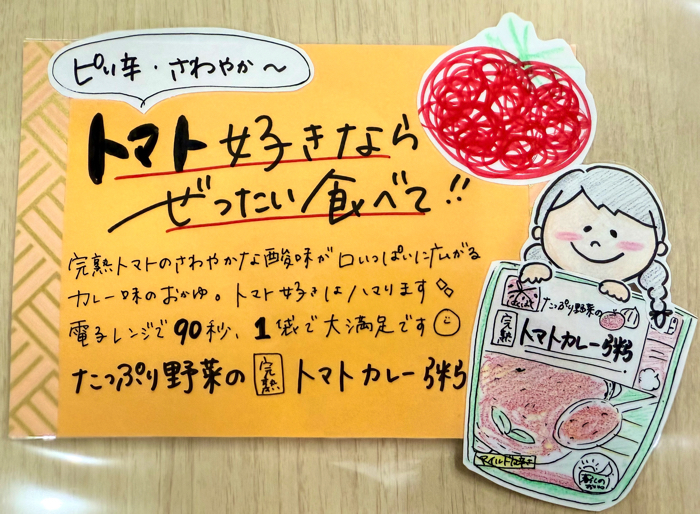 ピリ辛・さわやか〜
トマト好きなら
ぜったい食べて!!
完熟トマトのさわやかな酸味が口いっぱいに広がる
カレー味のおかゆ。トマト好きはハマります
電子レンジで90秒、1袋で大満足です
たっぷり野菜の 完熟 トマトカレー粥
たっぷり野菜の
完熟 トマトカレー粥
マイルドな辛さ